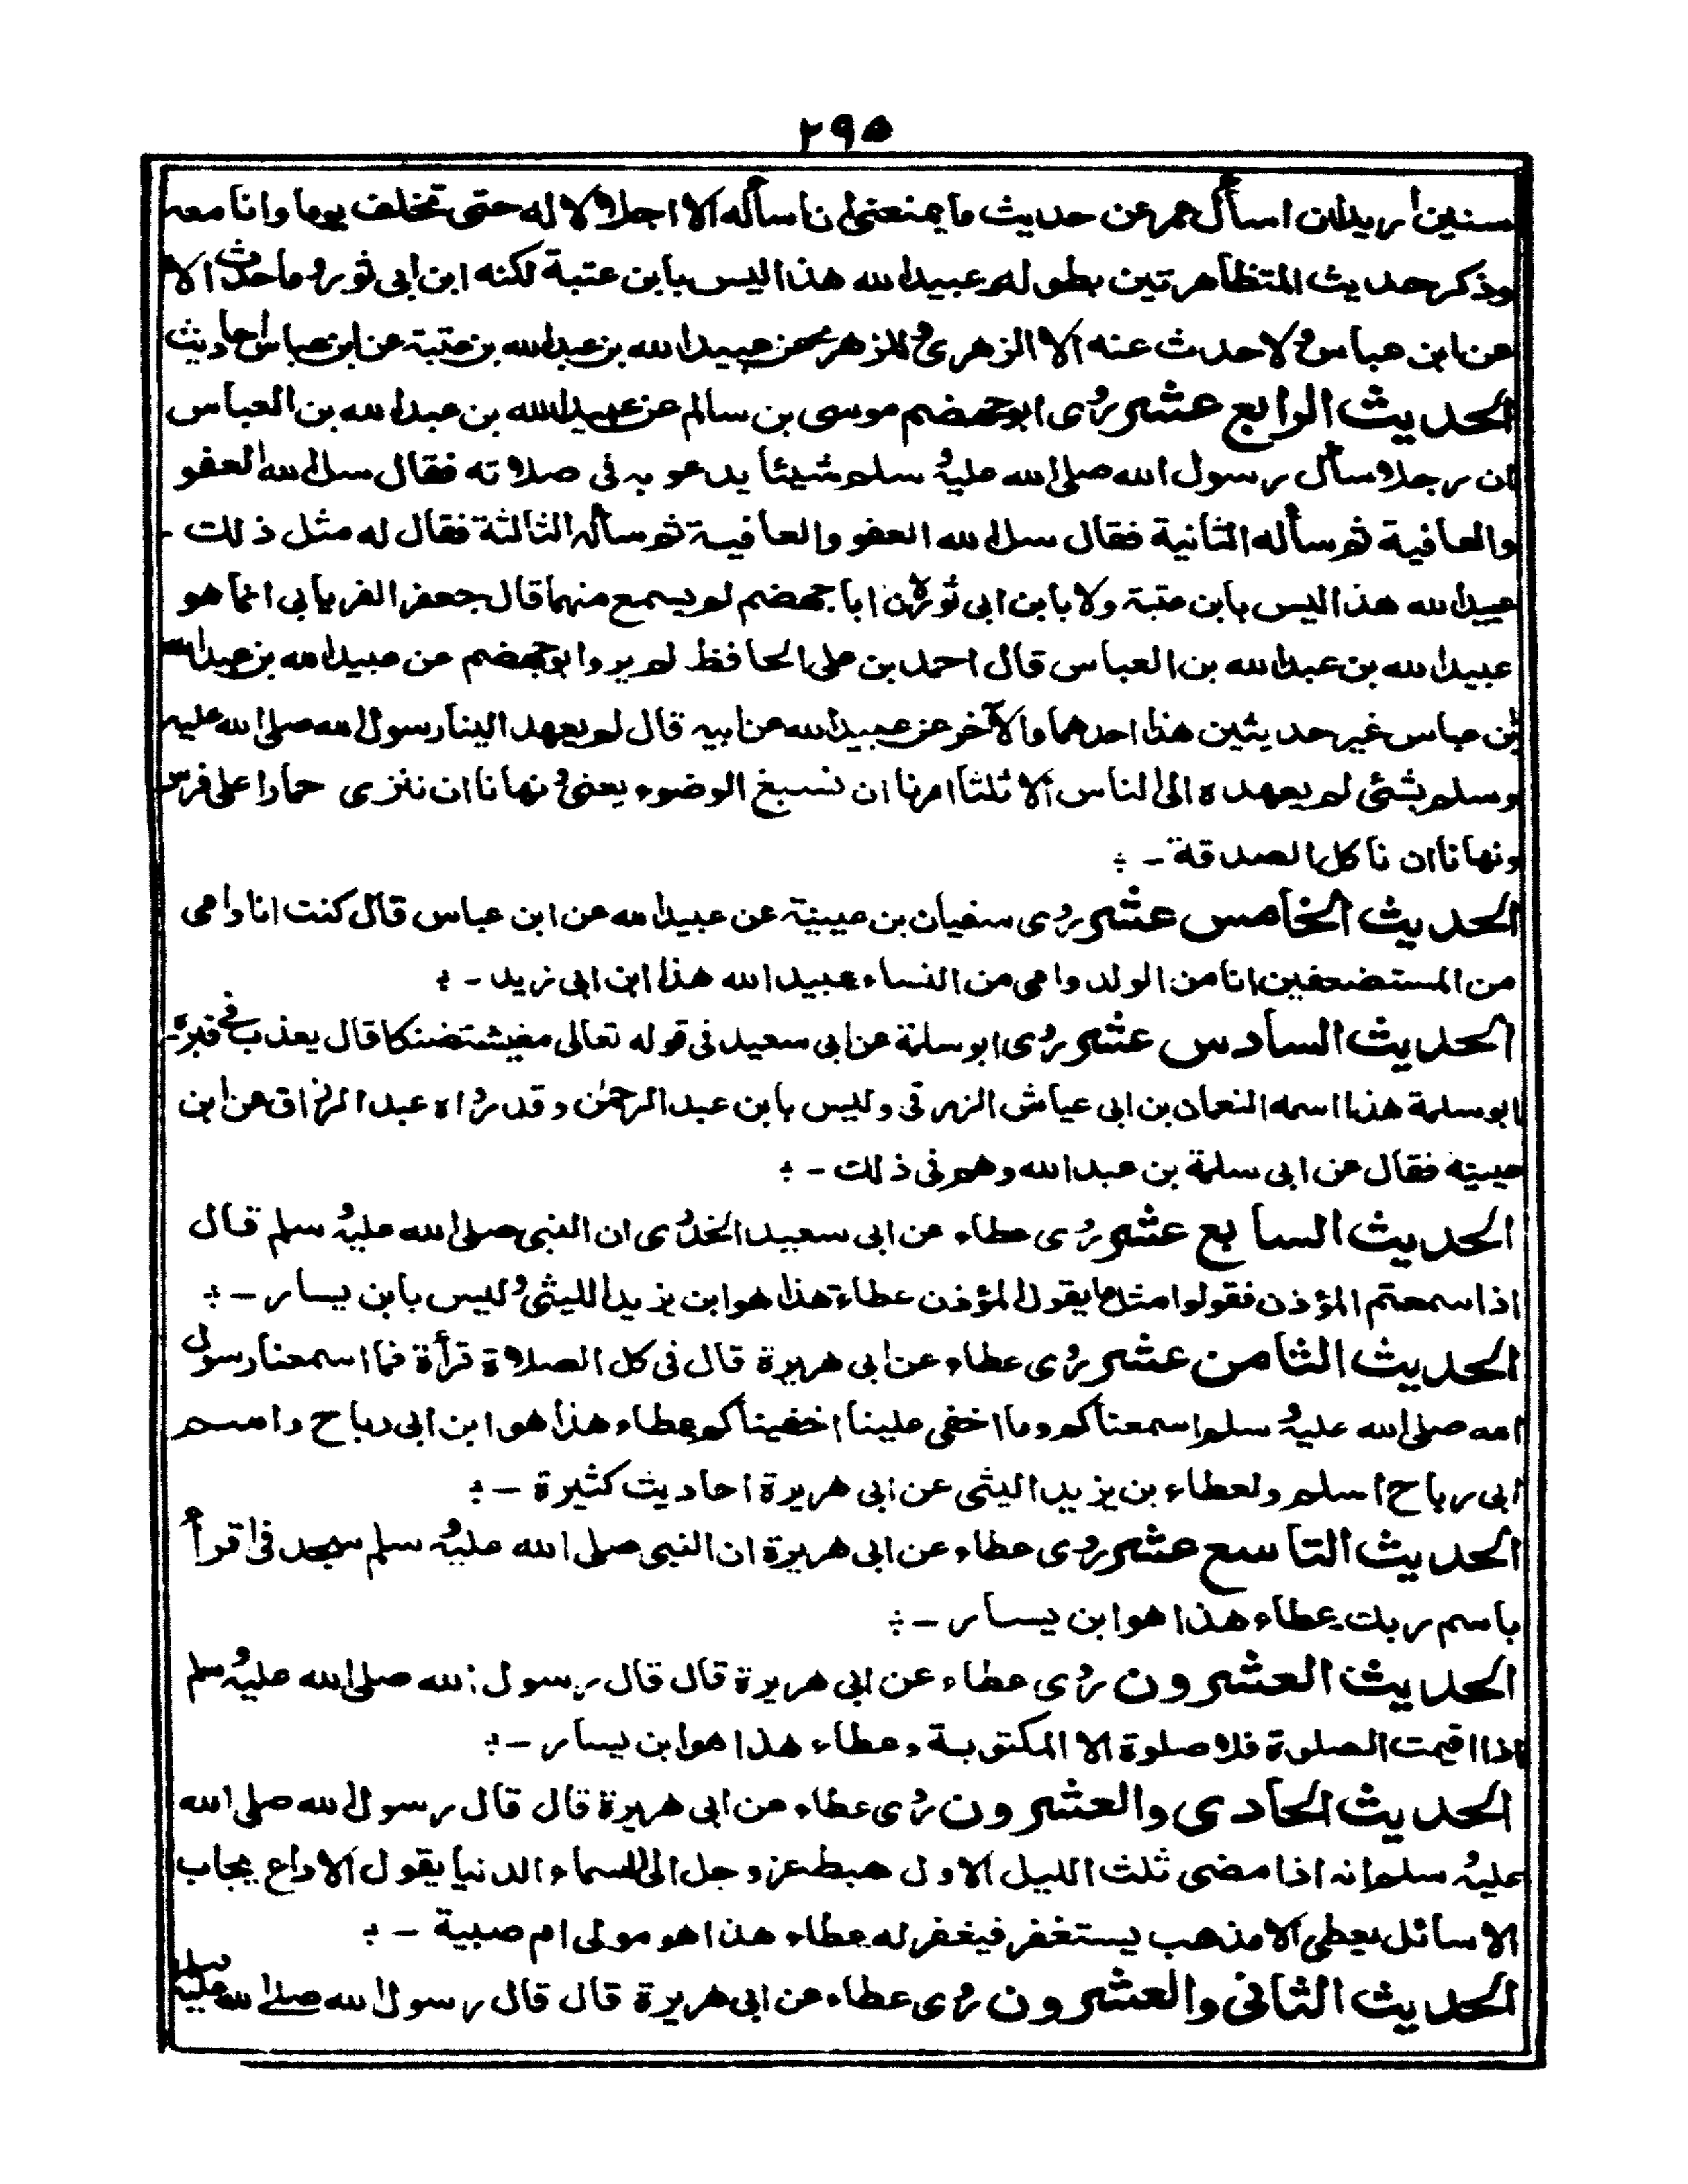 ٢٩٥
سنين اريد ان اسأل عمر عن حديث ما يمنعنى ان اسأله الا اجلالا له حتى تخلف يوما وانا معه
وذكر حديث المتظاهرتين بطوله وعبيدالله هذا ليس بابن عتبة لكنه ابن ابى ثور وما حدث الا
عن ابن عباس ولا حدث عنه الا الزهرى وللزهرى عن عبيدالله بن عبدالله بن عتبة عن ابن عباس احاديث
الحديث الرابع عشر روى ابوجهضم موسى بن سالم عن عبيدالله بن عبدالله بن العباس
ان رجلا سأل رسول الله صلى الله عليه وسلم شيئا يدعو به فى صلاته فقال سل الله العفو
والعافية ثم سأله الثانية فقال سل الله العفو والعافية ثم سأله الثالثة فقال له مثل ذلك -
عبيدالله هذا ليس بابن عتبة ولا بابن ابى ثور لان ابا جهضم لم يسمع منهما قال جعفر الفريابى انما هو
عبيدالله بن عبدالله بن العباس قال احمد بن على الحافظ لم يرو ابوجهضم عن عبيدالله بن عبدالله
بن عباس غير حديثين هذا احدهما والآخر عن عبيدالله عن ابيه قال لم يعهد الينا رسول الله صلى الله عليه
وسلم بشئى لم يعهده الى الناس الا ثلثا امرنا ان نسبغ الوضوء يعنى ونهانا ان ننزى حمارا على فرس
ونهانا ان ناكل الصدقة -
الحديث الخامس عشر روى سفيان بن عيينة عن عبيدالله عن ابن عباس قال كنت انا وامى
من المستضعفين انا من الولد وامى من النساء عبيدالله هذا ابن ابى زيد -
الحديث السادس عشر روى ابوسلمة عن ابى سعيد فى قوله تعالى معيشة ضنكا قال يعذب فى قبره -
ابوسلمة هذا اسمه النعمان بن ابى عياش الزرقى وليس بابن عبدالرحمٰن وقد رواه عبدالرزاق عن ابن
عيينة فقال عن ابى سلمة بن عبدالله وهم فى ذلك -
الحديث السابع عشر روى عطاء عن ابى سعيد الخدرى ان النبى صلى الله عليه وسلم قال
اذا سمعتم المؤذن فقولوا مثل ما يقول المؤذن عطاء هذا هو ابن يزيد الليثى وليس بابن يسار -
الحديث الثامن عشر روى عطاء عن ابى هريرة قال فى كل الصلاة قرأة فما اسمعنا رسول
الله صلى الله عليه وسلم اسمعناكم وما اخفى علينا اخفيناكم عطاء هذا هو ابن ابى رباح واسم
ابى رباح اسلم ولعطاء بن يزيد اليثى عن ابى هريرة احاديث كثيرة -
الحديث التاسع عشر روى عطاء عن ابى هريرة ان النبى صلى الله عليه وسلم سجد فى اقرأ
باسم ربك عطاء هذا هو ابن يسار -
الحديث العشرون روى عطاء عن ابى هريرة قال قال رسول الله صلى الله عليه وسلم
اذا اقيمت الصلوة فلا صلوة الا المكتوبة وعطاء هذا هو ابن يسار -
الحديث الحادى والعشرون روى عطاء عن ابى هريرة قال قال رسول الله صلى الله
عليه وسلم انه اذا مضى ثلث الليل الاول هبط عز وجل الى السماء الدنيا يقول الا داع يجاب
الا سائل يعطى الا مذهب يستغفر فيغفر له عطاء هذا هو مولى ام صبية -
الحديث الثانى والعشرون روى عطاء عن ابى هريرة قال قال رسول الله صلى الله عليه وسلم